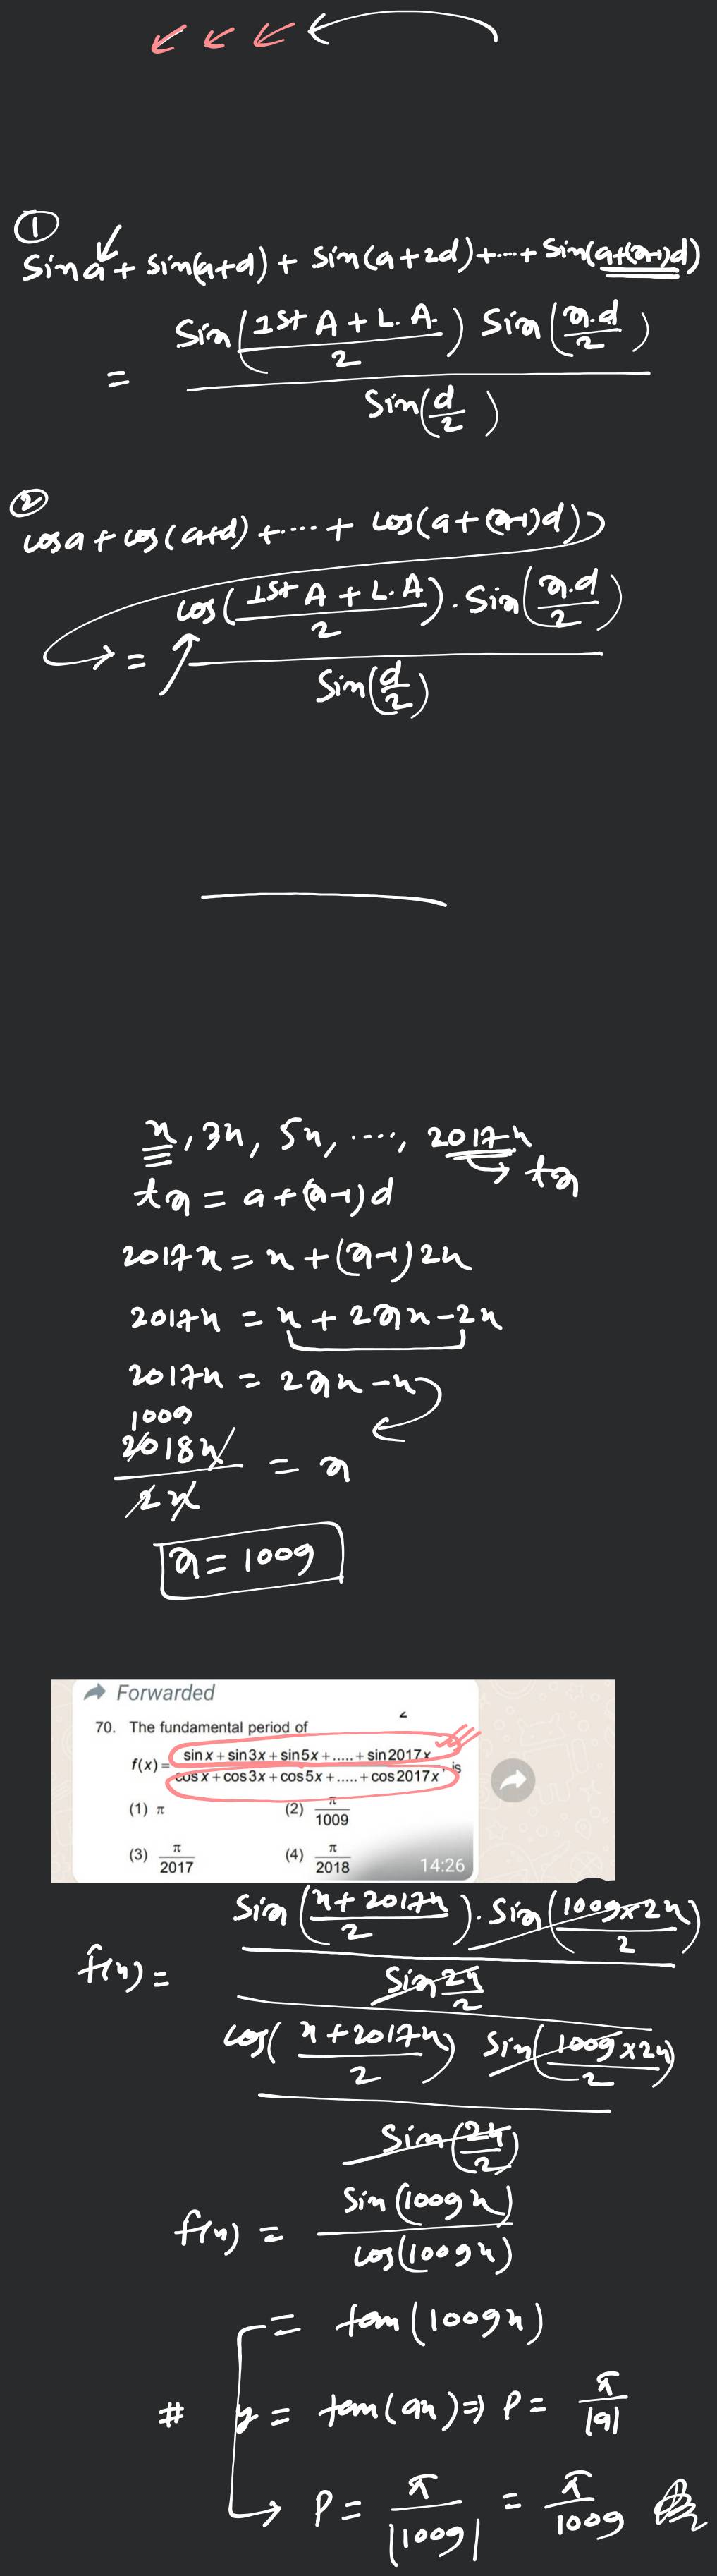 ①
Sin a + Sin(a+d) + Sin(a+2d)+....+ Sin(a+(n-1)d)
= Sin(1st A + L.A./2) Sin(n.d/2) / Sin(d/2)
②
cos a + cos(a+d) +....+ cos(a+(n-1)d)
= cos(1st A + L.A/2) . Sin(n.d/2) / Sin(d/2)
x, 3x, 5x, ...., 2017x
→ tn
tn = a+(n-1)d
2017x = x+(n-1)2x
2017x = x + 2nx-2x
2017x = 2nx-x
1009
2018x / 2x = n
n = 1009
Forwarded
70. The fundamental period of
f(x) = sin x + sin 3x + sin 5x + ..... + sin 2017x / cos x + cos 3x + cos 5x + ..... + cos 2017x , is
(1) π (2) π/1009
(3) π/2017 (4) π/2018
14:26
f(x) = Sin(x+2017x/2) . Sin(1009x2x/2) / Sin 2x/2
cos(x+2017x/2) Sin(1009x2x/2) / Sin(2x/2)
f(x) = Sin(1009x) / cos(1009x)
= tan(1009x)
# y = tan(ax) ⇒ P = π/|a|
→ P = π/|1009| = π/1009